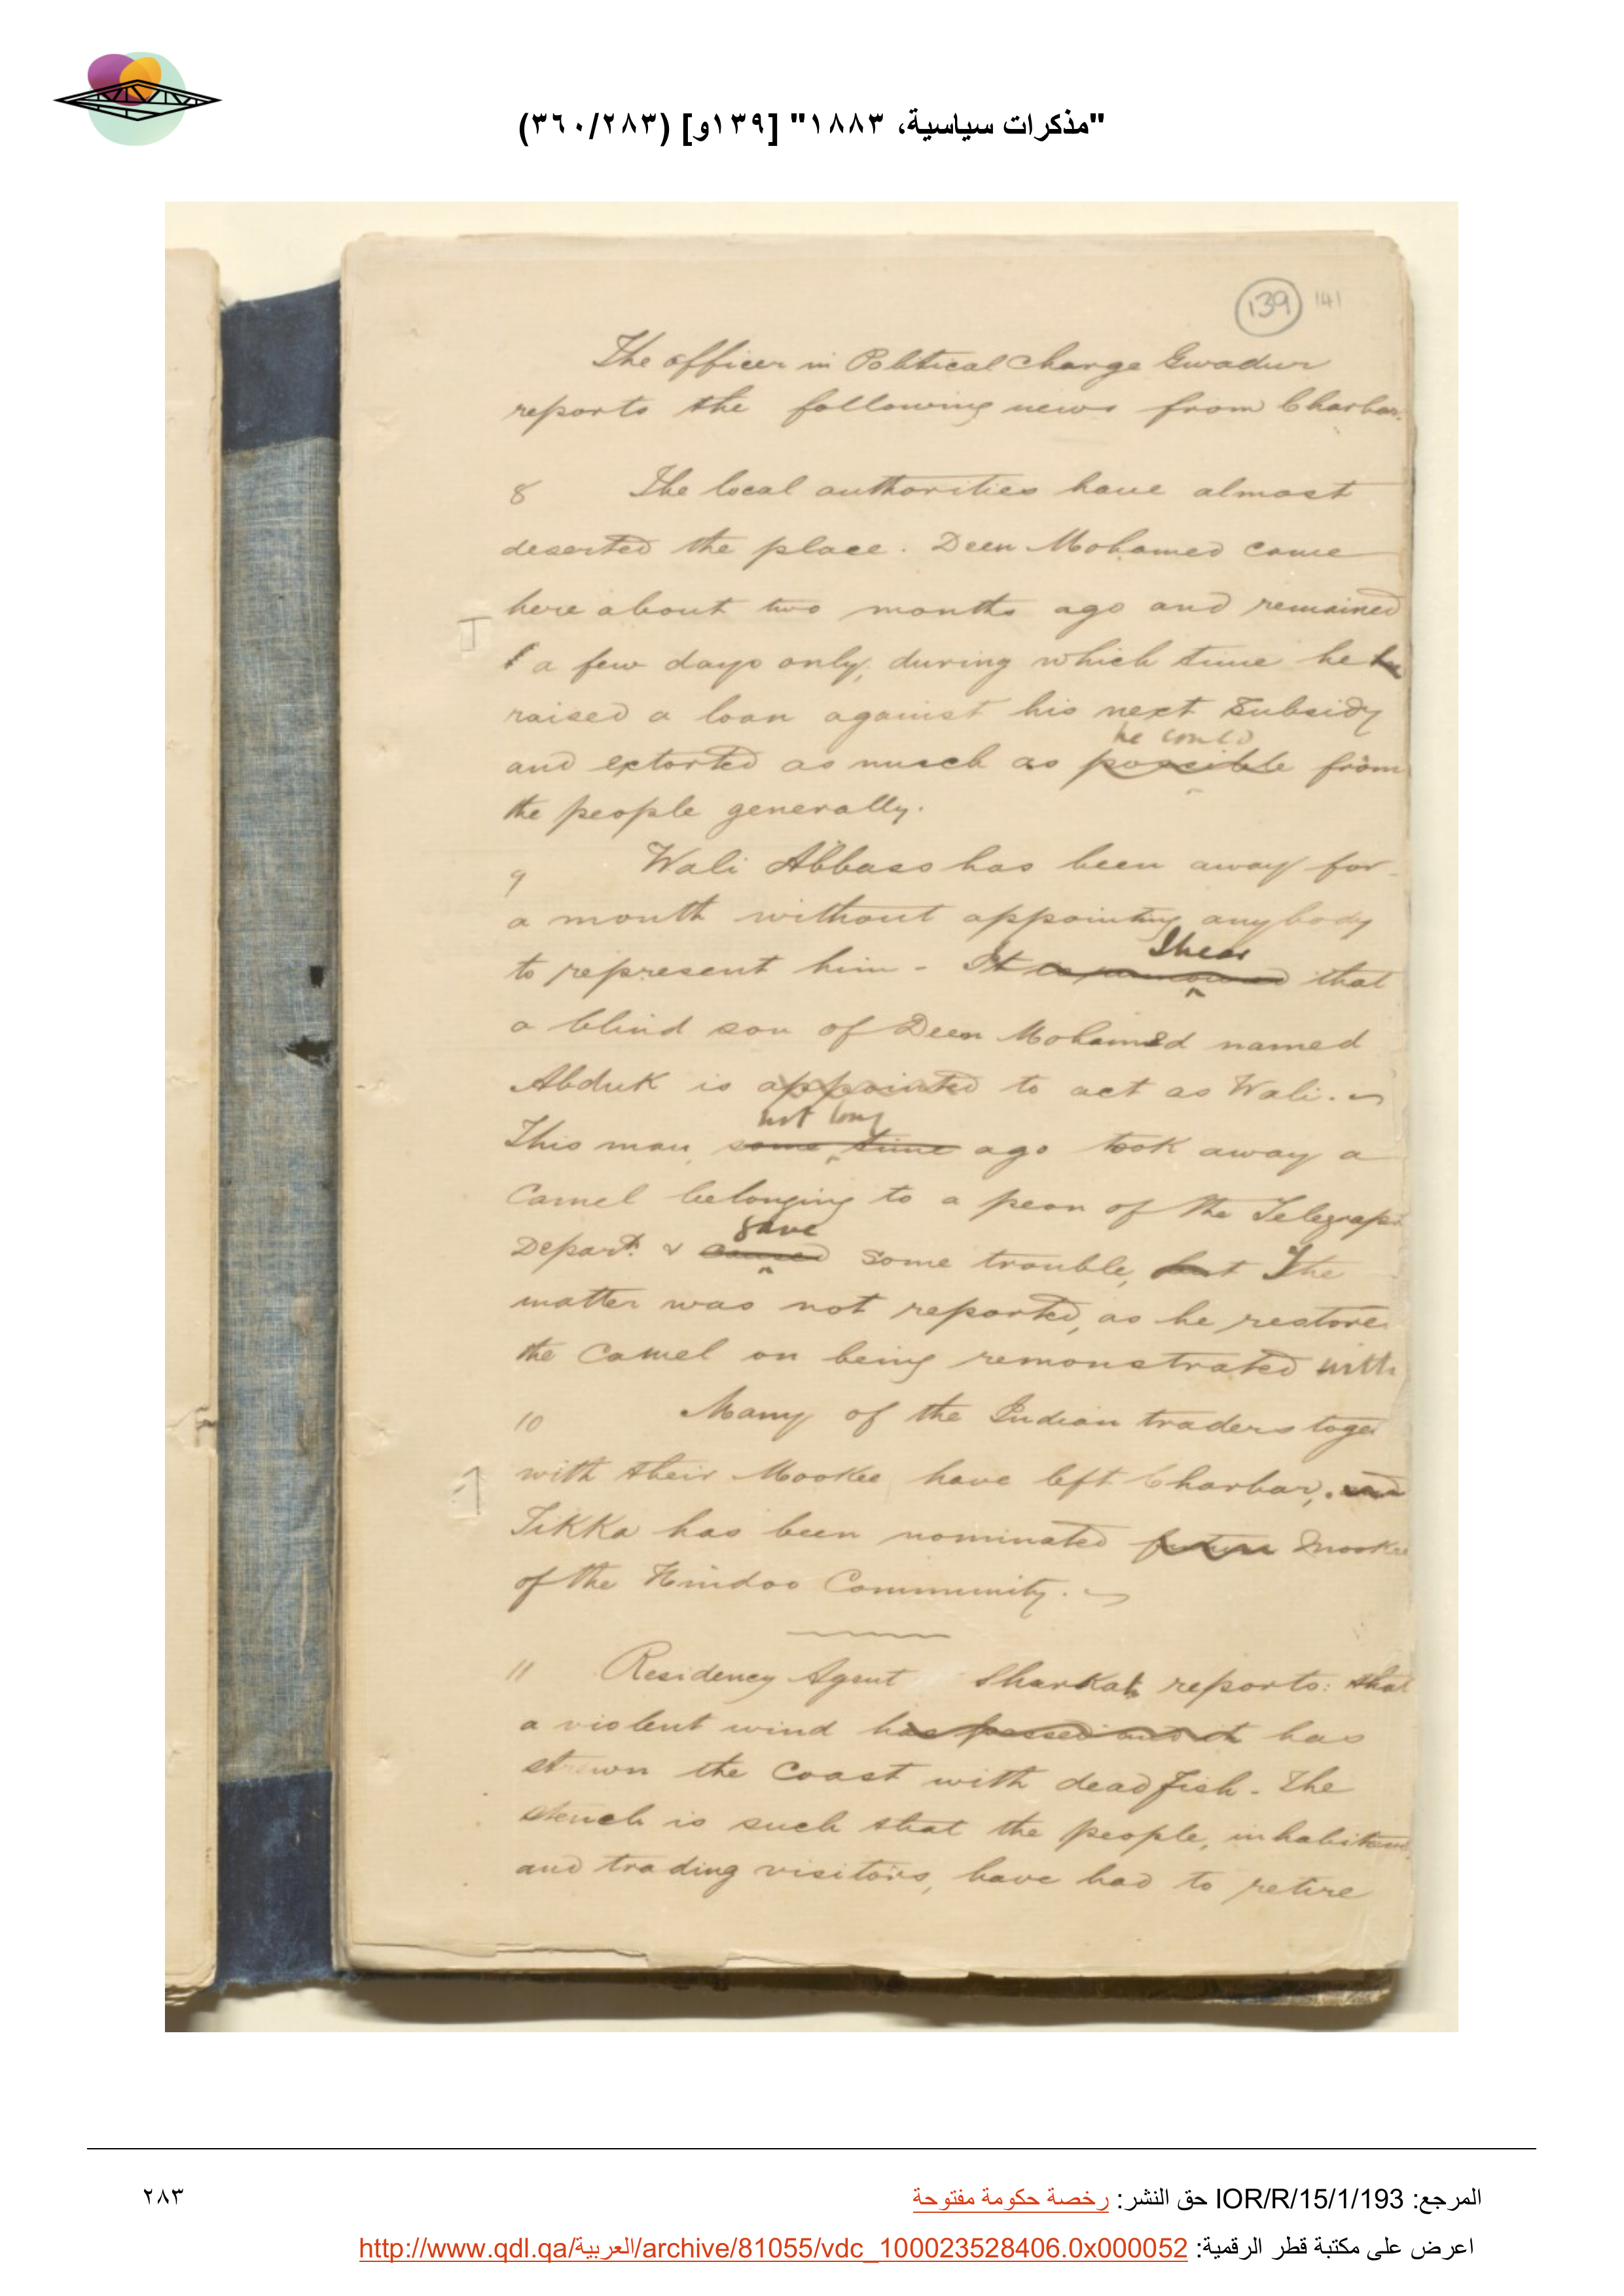 "مذكرات سياسية، ١٨٨٣" [١٣٩و] (٣٦٠/٢٨٣)
139 141
The officer in Political Charge Gwadur
reports the following news from Charbar.
8 The local authorities have almost
deserted the place. Deen Mohamed came
here about two months ago and remained
a few days only, during which time he
raised a loan against his next Subsidy
he could
and extorted as much as possible from
the people generally.
9 Wali Abbass has been away for
a month without appointing anybody
I hear
to represent him - It that
a blind son of Deen Mohamed named
Abduk is appointed to act as Wali.
not long
This man, some time ago took away a
Camel belonging to a peon of the Telegraph
gave
Depart. & caused some trouble, but The
matter was not reported, as he restore
the Camel on being remonstrated with
10 Many of the Indian traders toge
with their Mookee have left Charbar, and
Tikka has been nominated future Mookee
of the Hindoo Community.
11 Residency Agent Sharkah reports: that
a violent wind has passed and it has
strewn the Coast with dead fish. The
stench is such that the people, inhabitants
and trading visitors, have had to retire
المرجع: IOR/R/15/1/193 حق النشر: رخصة حكومة مفتوحة
٢٨٣
اعرض على مكتبة قطر الرقمية: http://www.qdl.qa/العربية/archive/81055/vdc_100023528406.0x000052